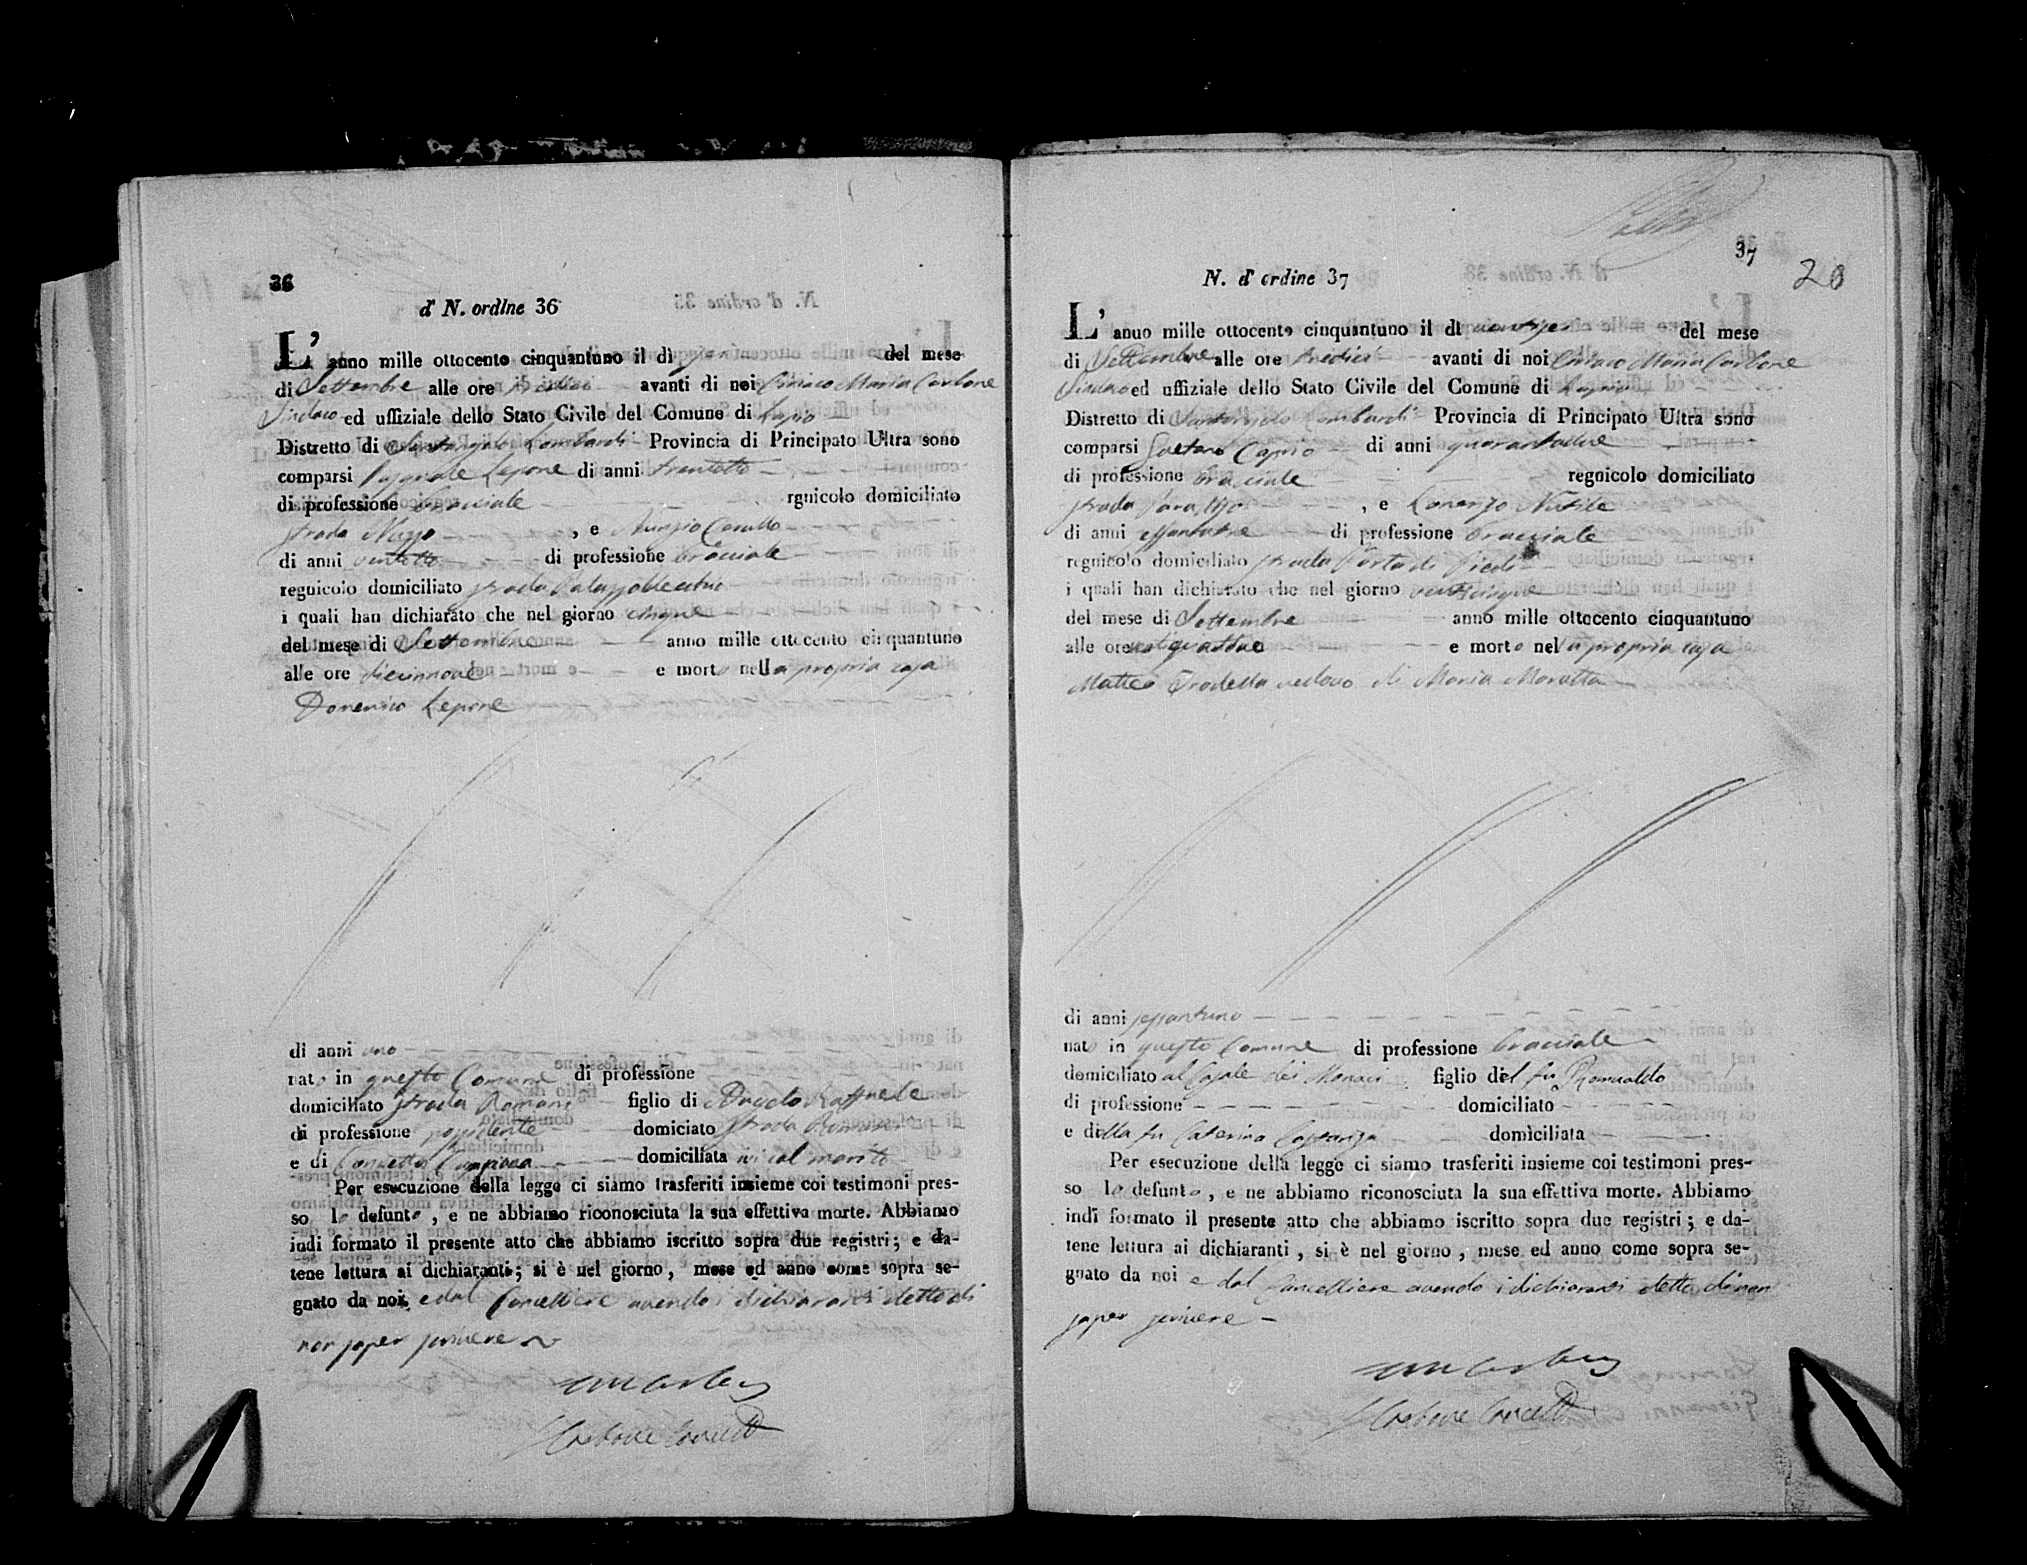 36
d' N. ordine 36
L' anno mille ottocento cinquantuno il dì del mese
di Settembre alle ore avanti di noi Ciriaco Maria Carbone
Sindaco ed uffiziale dello Stato Civile del Comune di Lapio
Distretto di Santangelo Lombardi Provincia di Principato Ultra sono
comparsi Pasquale Lepore di anni trentotto
di professione bracciale rgnicolo domiciliato
strada , e Nunzio Carullo
di anni ventotto di professione bracciale
regnicolo domiciliato strada
i quali han dichiarato che nel giorno cinque
del mese di Settembre anno mille ottocento cinquantuno
alle ore diecinnove e morto nella propria casa
Domenico Lepore
di anni uno
nato in questo Comune di professione
domiciliato strada Romani figlio di Raffaele
di professione possidente domiciato strada Romani
e di Concetta domiciliata ivi col marito
Per esecuzione della legge ci siamo trasferiti insieme coi testimoni pres-
so lo defunto , e ne abbiamo riconosciuta la sua effettiva morte. Abbiamo
indi formato il presente atto che abbiamo iscritto sopra due registri ; e da-
tene lettura ai dichiaranti ; si è nel giorno , mese ed anno come sopra se-
gnato da noi e dal Cancelliere avendo i dichiaranti detto di
non saper scrivere
Carbone Cancell
37
20
N. d' ordine 37
L' anno mille ottocento cinquantuno il dì ventisei del mese
di Settembre alle ore tredici avanti di noi Ciriaco Maria Carbone
Sindaco ed uffiziale dello Stato Civile del Comune di Lapio
Distretto di Santangelo Lombardi Provincia di Principato Ultra sono
comparsi Gaetano Caprio di anni quarantadue
di professione bracciale regnicolo domiciliato
strada , e Lorenzo Nutile
di anni di professione bracciale
regnicolo domiciliato strada Porta di Piedi
i quali han dichiarato che nel giorno venticinque
del mese di Settembre anno mille ottocento cinquantuno
alle ore ventiquattro e morto nella propria casa
Matteo Trodella vedovo di Maria Moratta
di anni sessantuno
nato in questo Comune di professione bracciale
domiciliato al Casale dei Monaci figlio del fu Romualdo
di professione domiciliato
e della fu Caterina domiciliata
Per esecuzione della legge ci siamo trasferiti insieme coi testimoni pres-
so lo defunto , e ne abbiamo riconosciuta la sua effettiva morte. Abbiamo
indi formato il presente atto che abbiamo iscritto sopra due registri ; e da-
tene lettura ai dichiaranti , si è nel giorno , mese ed anno come sopra se-
gnato da noi e dal Cancelliere avendo i dichiaranti detto di non
saper scrivere
Carbone Cancell